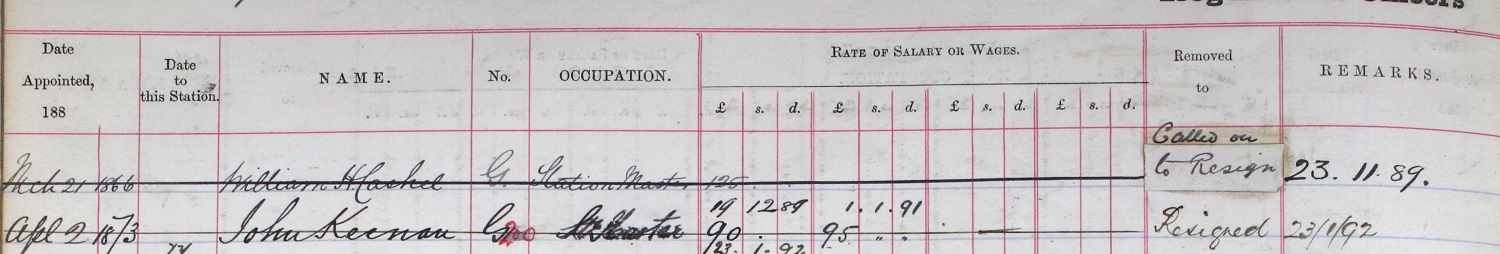 Date Appointed, 188
Date to this Station.
NAME.
No.
OCCUPATION.
RATE OF SALARY OR WAGES.
£ s. d. £ s. d. £ s. d. £ s. d.
Removed to
REMARKS.
Called on
Mch 21 1866 William H Cashel G. Station Master 125 to Resign 23. 11. 89.
19 12 89 1. 1. 91
Apl 2 1873 John Keenan G 200 90 . . 95 " " Resigned 23/1/92
23. 1. 92